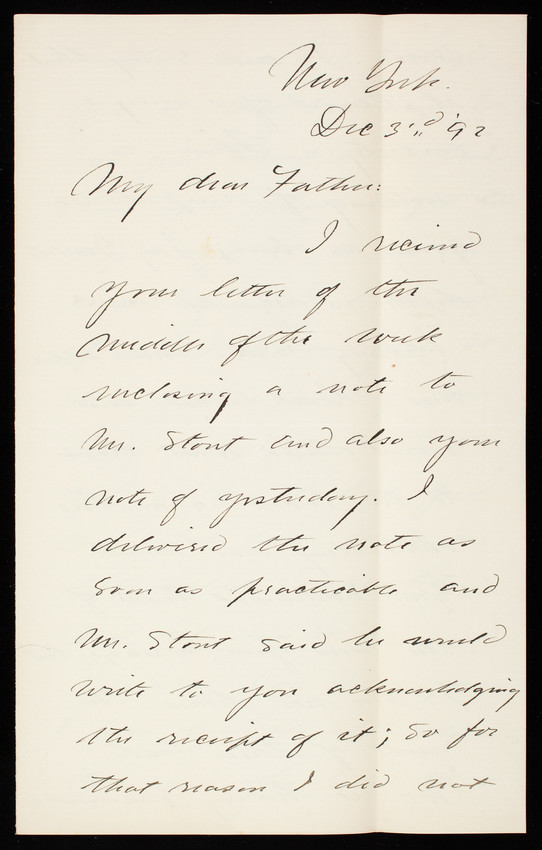 New York.
Dec 3rd '92
My dear Father:
I received
your letter of the
middle of the week
inclosing a note to
Mr. Stout and also your
note of yesterday. I
delivered the note as
soon as practicable and
Mr. Stout said he would
write to you acknowledging
the receipt of it; so for
that reason I did not